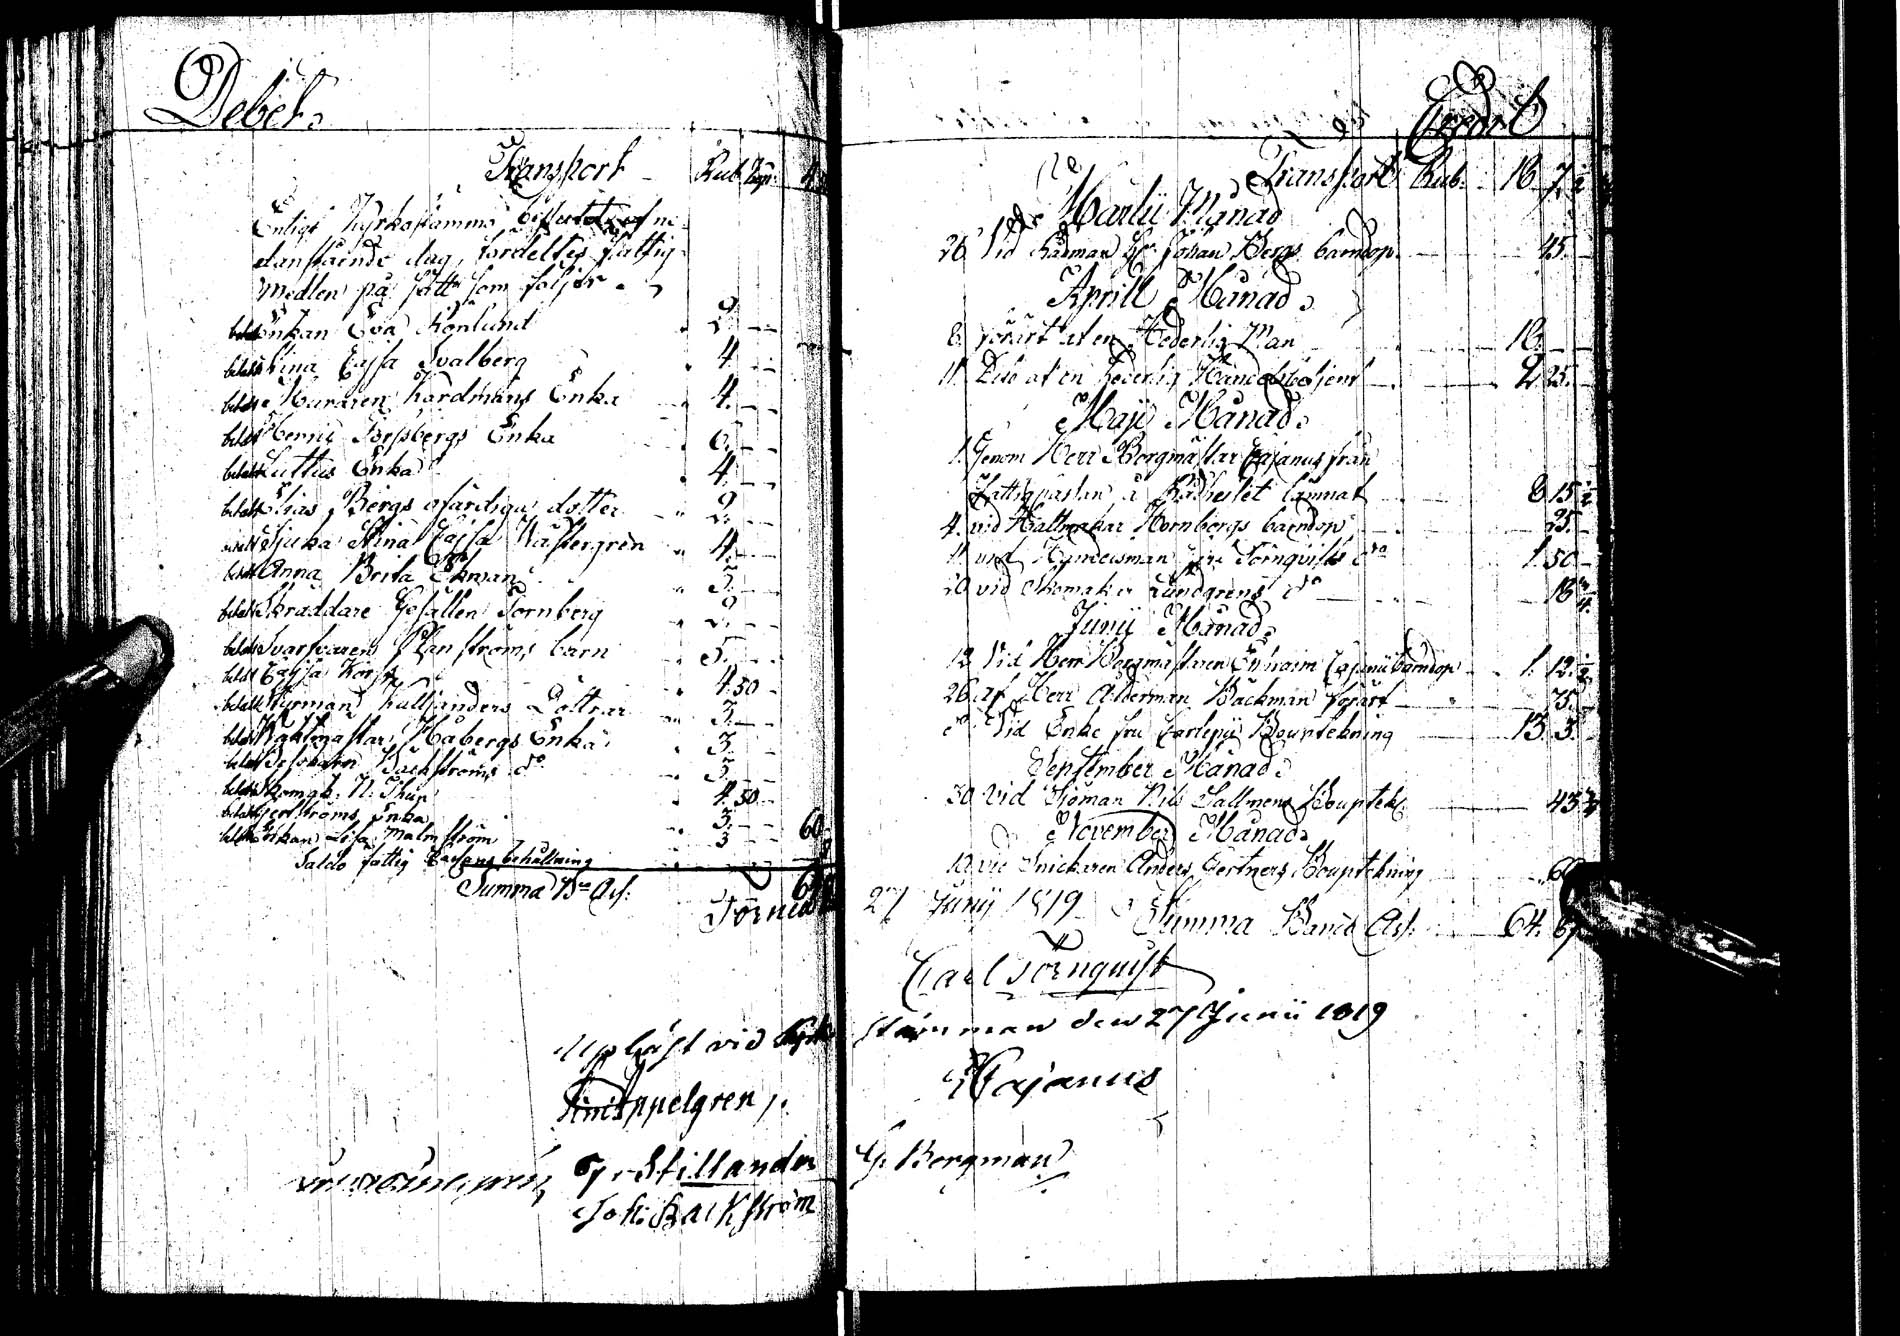 Debet.
Transport Rub. Kop. 4
Enligt Kyrkostämmo beslutet af ne-
danstående dag, fördeltes fattig-
medlen på sätt som följer.
betalt Enkan Eva Rönlund 2. —
betalt Stina Cajsa Svalberg 4. —
betalt Muraren Hårdmans Enka 4. —
betalt Henric Forssbergs Enka 6. —
betalt Luttus Enka 4. —
betalt Elias Bergs ofärdiga dotter 2. —
betalt Sjuka Stina Cajsa Wästergren 4. —
betalt Anna Brita Ekman 3. —
betalt Skräddare Gesällen Törnberg 2. —
betalt Svarfvaren Planströms barn 5. —
betalt Cajsa Korpi 4. 50 —
betalt Styrman Kulljanders Döttrar 3. —
betalt Waktmästar Håbergs Enka 3. —
betalt Backströms do 3. —
betalt Skomak. N. Thun 4. 50 —
betalt Gertströms Enka 3. —
betalt Enkan Lisa Malmström 3 60
Saldo fattig Cassans behållning
Summa Bco Ass:
Torneå
Upläst vid Kyrko
Appelgren
G. Stillander
Joh: Backström
Credit
Transport Rub. 18. 7 1/2
Martii Månad
26. Vid Rådman Hr Johan Bergs barndop 45. —
Aprill Månad
8. förärt af en Hederlig Man 18. —
11. Dito af en hederlig Handelsbetjent 2. 25. —
Maji Månad
1. Genom Herr Borgmästar Cajanus från
Fattigpåsan å Rådhuset lämnat 8. 15 1/2
4. vid Hattmakar Hornborgs barndop 25. —
11. vid Handelsman Törnqvists do 1. 50 —
20 vid Skomakar Lundgrens do 18 3/4
Junii Månad
12. Vid Herr Borgmästaren Ephraim Cajanii barndop 1. 12 1/2
26. Af Herr Ålderman Bäckman förärt 75. —
do Vid Enke fru Carlepii Bouptekning 13. 3. —
September Månad
30 Vid Sjöman Nils Sallmens Bouptek: 43 3/4
November Månad
12 vid Snickaren Anders Gertners Bouptekning
27 Junij 1819
Summa Banco Ass: 64.
Carl Törnquist
stämman den 27 Junii 1819
Cajanus
G. Bergman